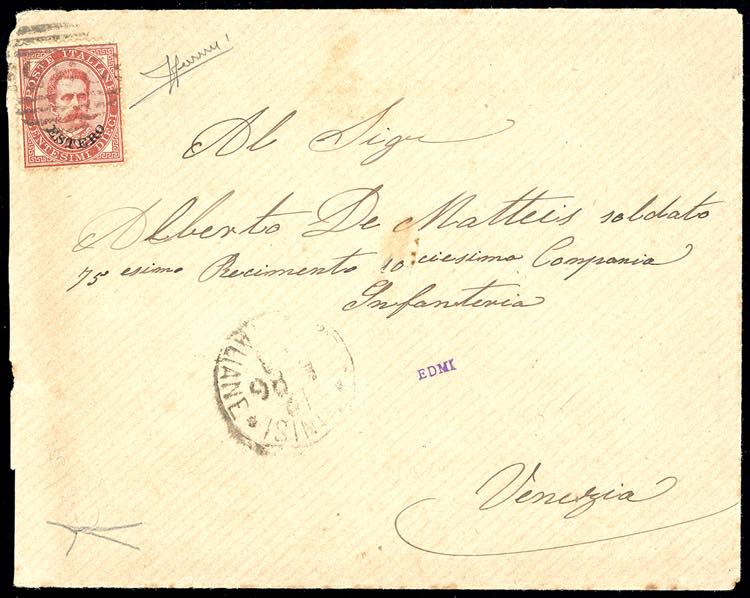 POSTE ITALIANE
ESTERO
CENTESIMI DIECI
Al Sigr
Alberto De Matteis soldato
75 esimo Recimento 10 ciesima Compania
Infanteria
EDMI
Venezia